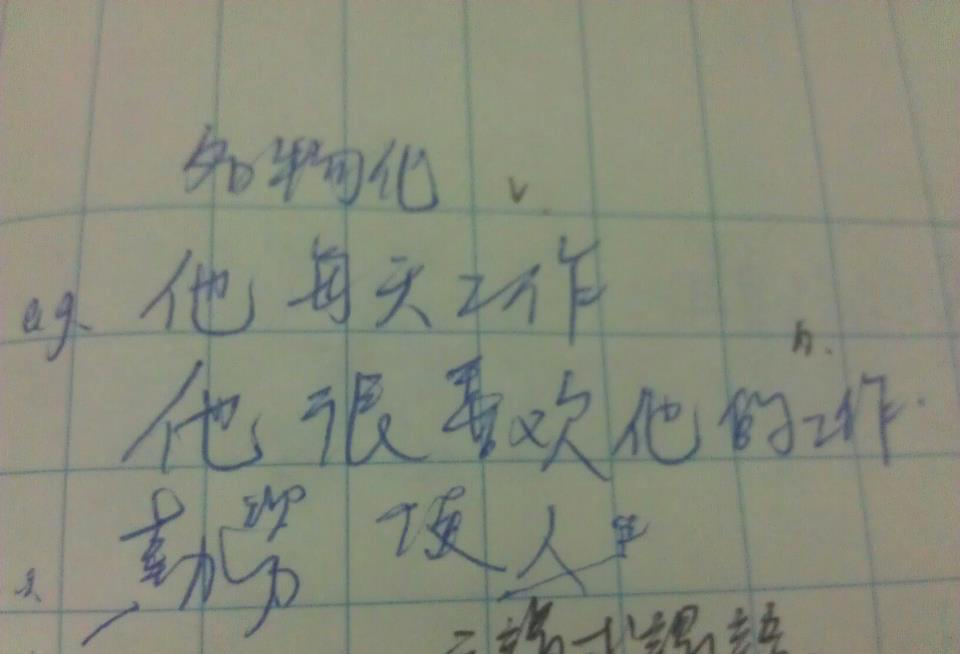 名物化 v.
e.g. 他每天工作
n.
他很喜欢他的工作.
勤劳 使人